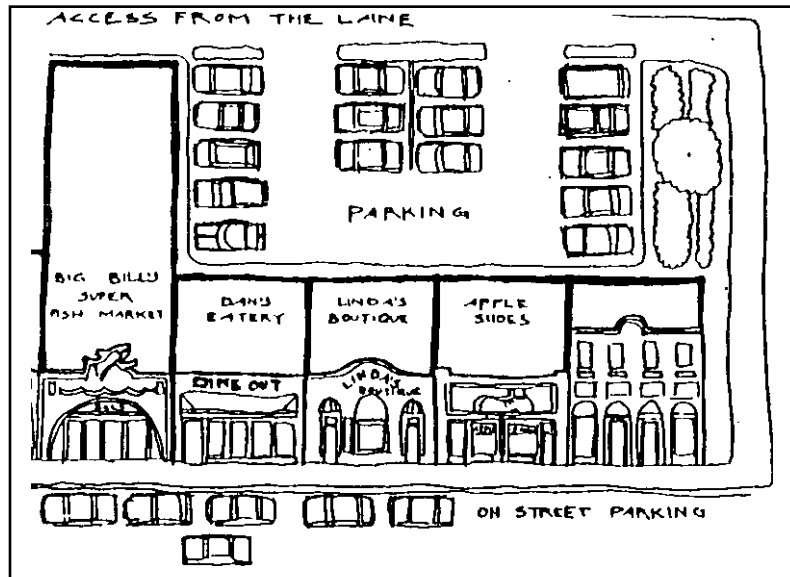 ACCESS FROM THE LAINE
PARKING
BIG BILL'S
SUPER
FISH MARKET
DAN'S
EATERY
LINDA'S
BOUTIQUE
APPLE
SHOES
DINE OUT
LINDA'S
BOUTIQUE
ON STREET PARKING